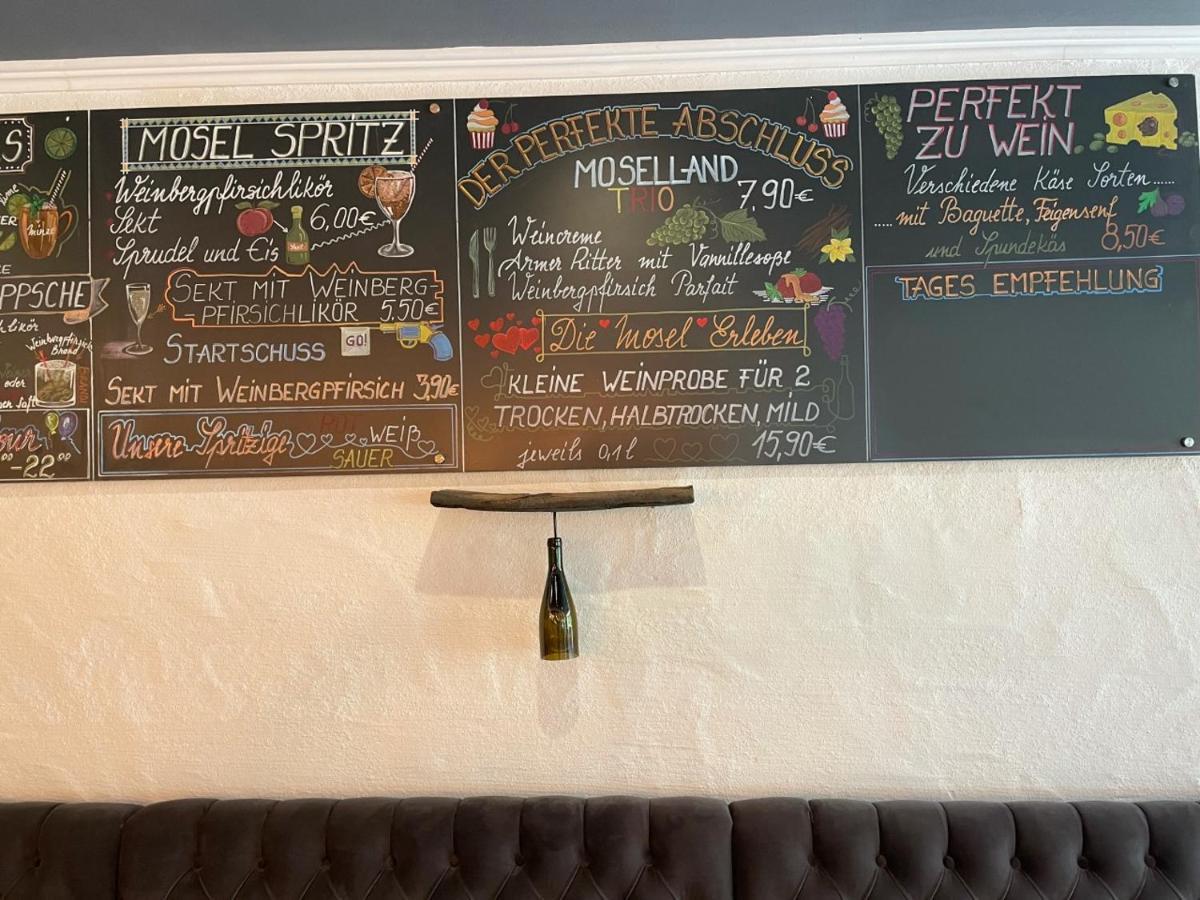 S
PPSCHE
Weinbergpfirsich
Brand
oder
-22⁰⁰
MOSEL SPRITZ
Weinbergpfirsichlikör
Sekt 6,00€
Sprudel und Eis
SEKT MIT WEINBERG-
-PFIRSICHLIKÖR 5,50€
STARTSCHUSS GO!
SEKT MIT WEINBERGPFIRSICH 3,90€
Unsere Spritzige ROT WEIß
SAUER
DER PERFEKTE ABSCHLUSS
MOSELLAND
TRIO 7,90€
Weincreme
Armer Ritter mit Vannillesoße
Weinbergpfirsich Parfait
Die Mosel Erleben
KLEINE WEINPROBE FÜR 2
TROCKEN, HALBTROCKEN, MILD
jeweils 0,1l 15,90€
PERFEKT
ZU WEIN
Verschiedene Käse Sorten.....
..... mit Baguette, Feigensenf
und Spundekäs 8,50€
TAGES EMPFEHLUNG